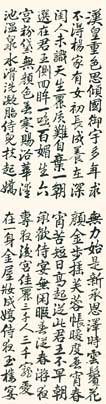 漢皇重色思傾國御宇多年求
不得楊家有女初長成養在深
閨人未識天生麗質難自棄一朝
選在君王側回眸一笑百媚生六
宮粉黛無顏色春寒賜浴華清
池溫泉水滑洗凝脂侍兒扶起嬌
無力始是新承恩澤時雲鬢花
顏金步搖芙蓉帳暖度春宵春
宵苦短日高起從此君王不早朝
承歡侍宴無閑暇春從春遊夜
專夜後宮佳麗三千人三千寵愛
在一身金屋妝成嬌侍夜玉樓宴